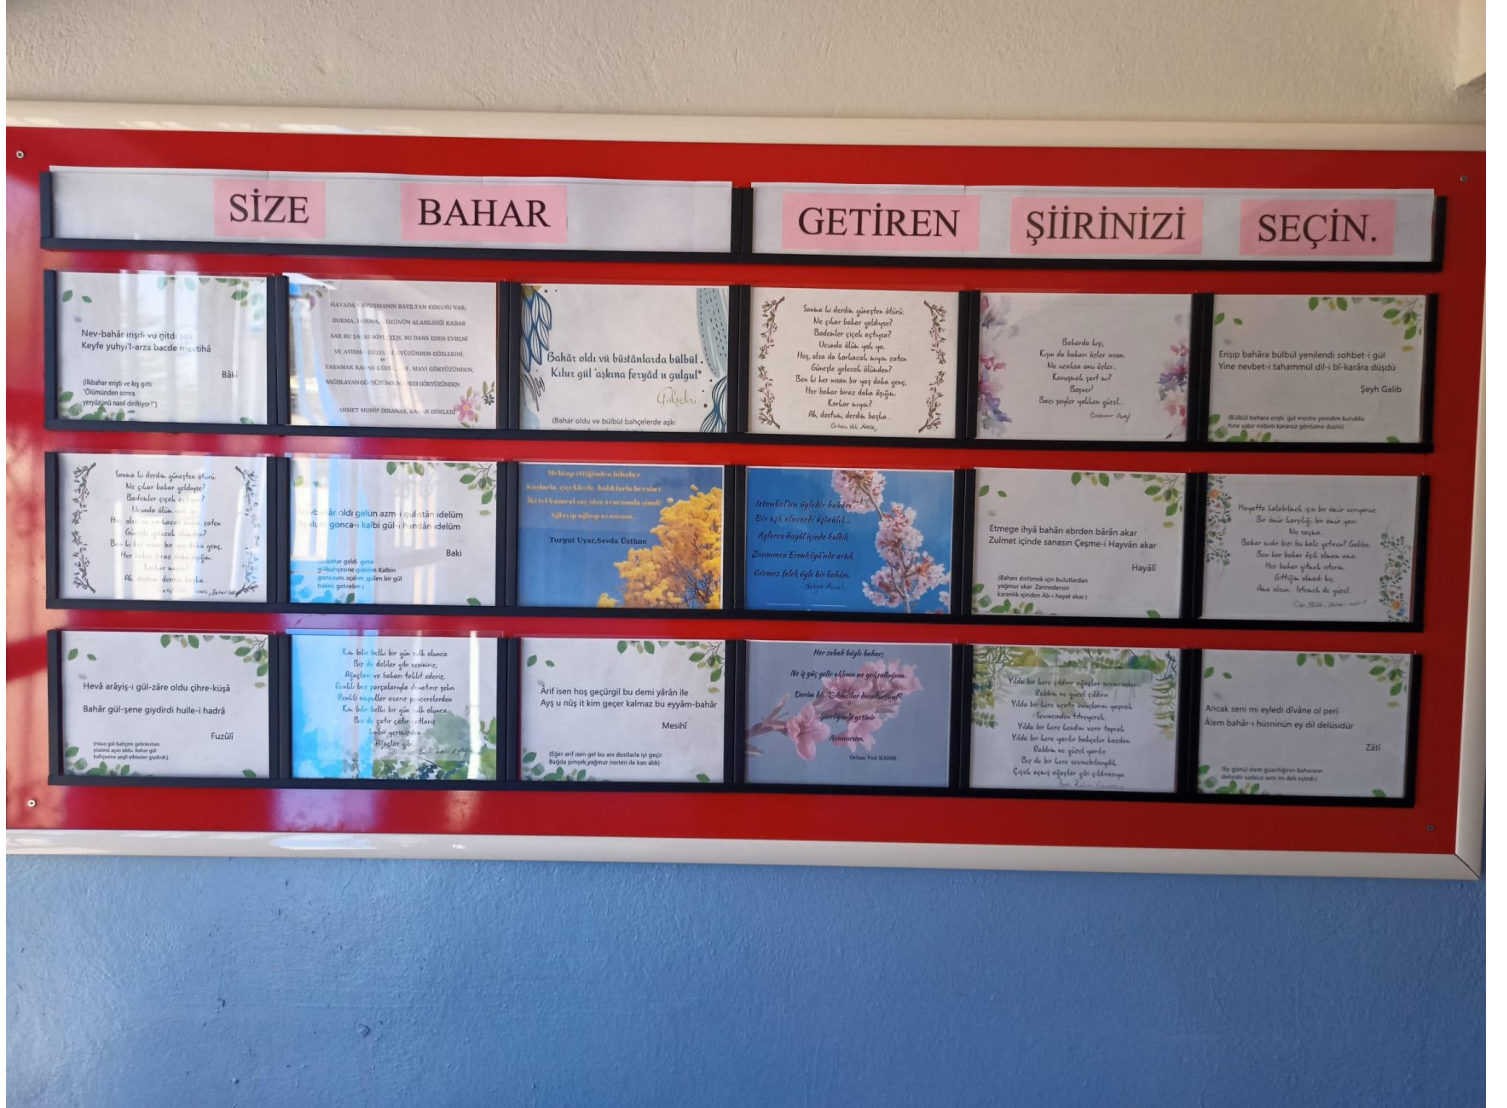 SİZE BAHAR GETİREN ŞİİRİNİZİ SEÇİN.
Nev-bahâr irişdi vu gitdi
Keyfe yuhyi'l-arza bacde mevtihâ
Bâkî
(İlkbahar erişti ve kış gitti
"Ölümünden sonra
yeryüzünü nasıl diriltiyor?")
HAVADA KOKUSU VAR,
DURMA, DURMA, GÖZÜNÜN ALABİLDİĞİ KADAR
SAR BU ŞARKI SÖYLEYEN, BU DANS EDEN EVRENİ
VE AYIRMA GÜZEL GÖKYÜZÜNDEN GÖZLERİNİ.
YAŞAMAK KADAR GÜZEL, MAVİ GÖKYÜZÜNDEN,
GÖKYÜZÜNDEN
AHMET MUHİP DIRANAS, BAHAR GÖKLERİ
Bahâr oldı vü bûstânlarda bülbül
Kılur gül 'aşkına feryâd u gulgul"
Gülşehri
(Bahar oldu ve bülbül bahçelerde aşkı
Sanma ki derdim güneşten ötürü:
Ne çıkar bahar geldiyse?
Bademler çiçek açtıysa?
Ucunda ölüm yok ya.
Hoş, olsa da korkacak mıyım zaten
Güneşle gelecek ölümden?
Ben ki her nisan bir yaş daha genç,
Her bahar biraz daha âşığım.
Korkar mıyım?
Ah, dostum, derdim başka...
Orhan Veli Kanık
Baharda kışı,
Kışın da baharı özler insan.
Ne uzaksa onu özler.
Kavuşmak şart mı?
Boşver!
Bazı şeyler yokken güzel...
Özdemir Asaf
Erişip bahâra bülbül yenilendi sohbet-i gül
Yine nevbet-i tahammül dil-i bî-karâra düşdü
Şeyh Galib
(Bülbül bahara erişti, gül meclisi yeniden kuruldu
Yine sabır nöbeti kararsız gönlüme düştü)
Sanma ki derdim güneşten ötürü:
Ne çıkar bahar geldiyse?
Bademler çiçek
Ucunda ölüm
Hoş, olsa korkacak mıyım zaten
Güneşle gelecek ölümden?
Ben ki her nisan bir yaş daha genç,
Her bahar biraz daha âşığım.
Korkar
Ah, dostum, derdim başka...
oldı gelün azm-i gülistân idelüm
gonca-ı kalbi gül-i handân idelüm
Baki
geldi gelin
gidelim Kalbin
goncasını açalım gülen bir gül
haline getirelim.)
Mehtap ettiğinden bihaber
Kuşlarla, çiçeklerle, balıklarla beraber
İki tel kumral saç olsa avucumda şimdi
Ağlayıp ağlayıp avunsam...
Turgut Uyar,Sevda Üstüne
İstanbul'un öyledir baharı
Bir aşk oluverdi âşinâlık...
Aylarca hayâl içinde kaldık
Zannımca Erenköyü'nde artık
Görmez felek öyle bir baharı.
Etmege ihyâ bahârı ebrden bârân akar
Zulmet içinde sanasın Çeşme-i Hayvân akar
Hayâlî
(Baharı diriltmek için bulutlardan
yağmur akar Zannedersin
karanlık içinden Âb-ı hayat akar.)
Hayatta kalabilmek için bir ömür veriyoruz.
Bir ömür karşılığı, bir ömür yani.
Ne saçma.
Bahar mıdır bizi bu hale getiren? Galiba
Ben her bahar âşık olmam ama
Her bahar gitmek isterim.
Gittiğim olmadı hiç,
Ama olsun... İstemek de güzel.
Hevâ arâyiş-ı gül-zâre oldu çihre-küşâ
Bahâr gül-şene giydirdi hulle-i hadrâ
Fuzûlî
(Hava gül bahçesi gelinlerinin
yüzünü açıcı oldu. Bahar gül
bahçesine yeşil elbiseler giydirdi.)
Kim bilir belki bir gün sulh olunca
Biz de deliler gibi seviniriz,
Ağaçları ve baharı taklit ederiz.
Renkli bez parçalarıyla donatırız şehri
Renkli ampuller asarız pencerelerden
Kim bilir belki bir gün sulh olunca
Biz de çatır çatır çatlarız
yerimizden
Ağaçlar gibi
Ârif isen hoş geçürgil bu demi yârân ile
Ayş u nûş it kim geçer kalmaz bu eyyâm-bahâr
Mesihî
(Eğer arif isen gel bu anı dostlarla iyi geçir
Bağda şimşek,yağmur nerten de kan aldı)
Her sabah böyle bahar;
Ne iş güç gelir aklıma ne yoksulluğum.
Derim ki: "Sıkıntılar duradursun!"
Şairliğimle yetinir
Avunurum.
Orhan Veli KANIK
Yılda bir kere çıldırır ağaçlar sevincinden
Rabbim ne güzel çıldırır
Yılda bir kere uzatır avuçlarını yaprak
Sevincinden titreyerek
Yılda bir kere kendini verir toprak
Yılda bir kere yarılır bahçeler hazdan
Rabbim ne güzel yarılır
Biz de bir kere sevinebilseydik
Çiçek açmış ağaçlar gibi çıldırasıya
Ancak seni mi eyledi dîvâne ol perî
Âlem bahâr-ı hüsninün ey dil delüsidür
Zâtî
(Ey gönül alem güzelliğinin baharının
delisidir sadece seni mi deli eyledi.)